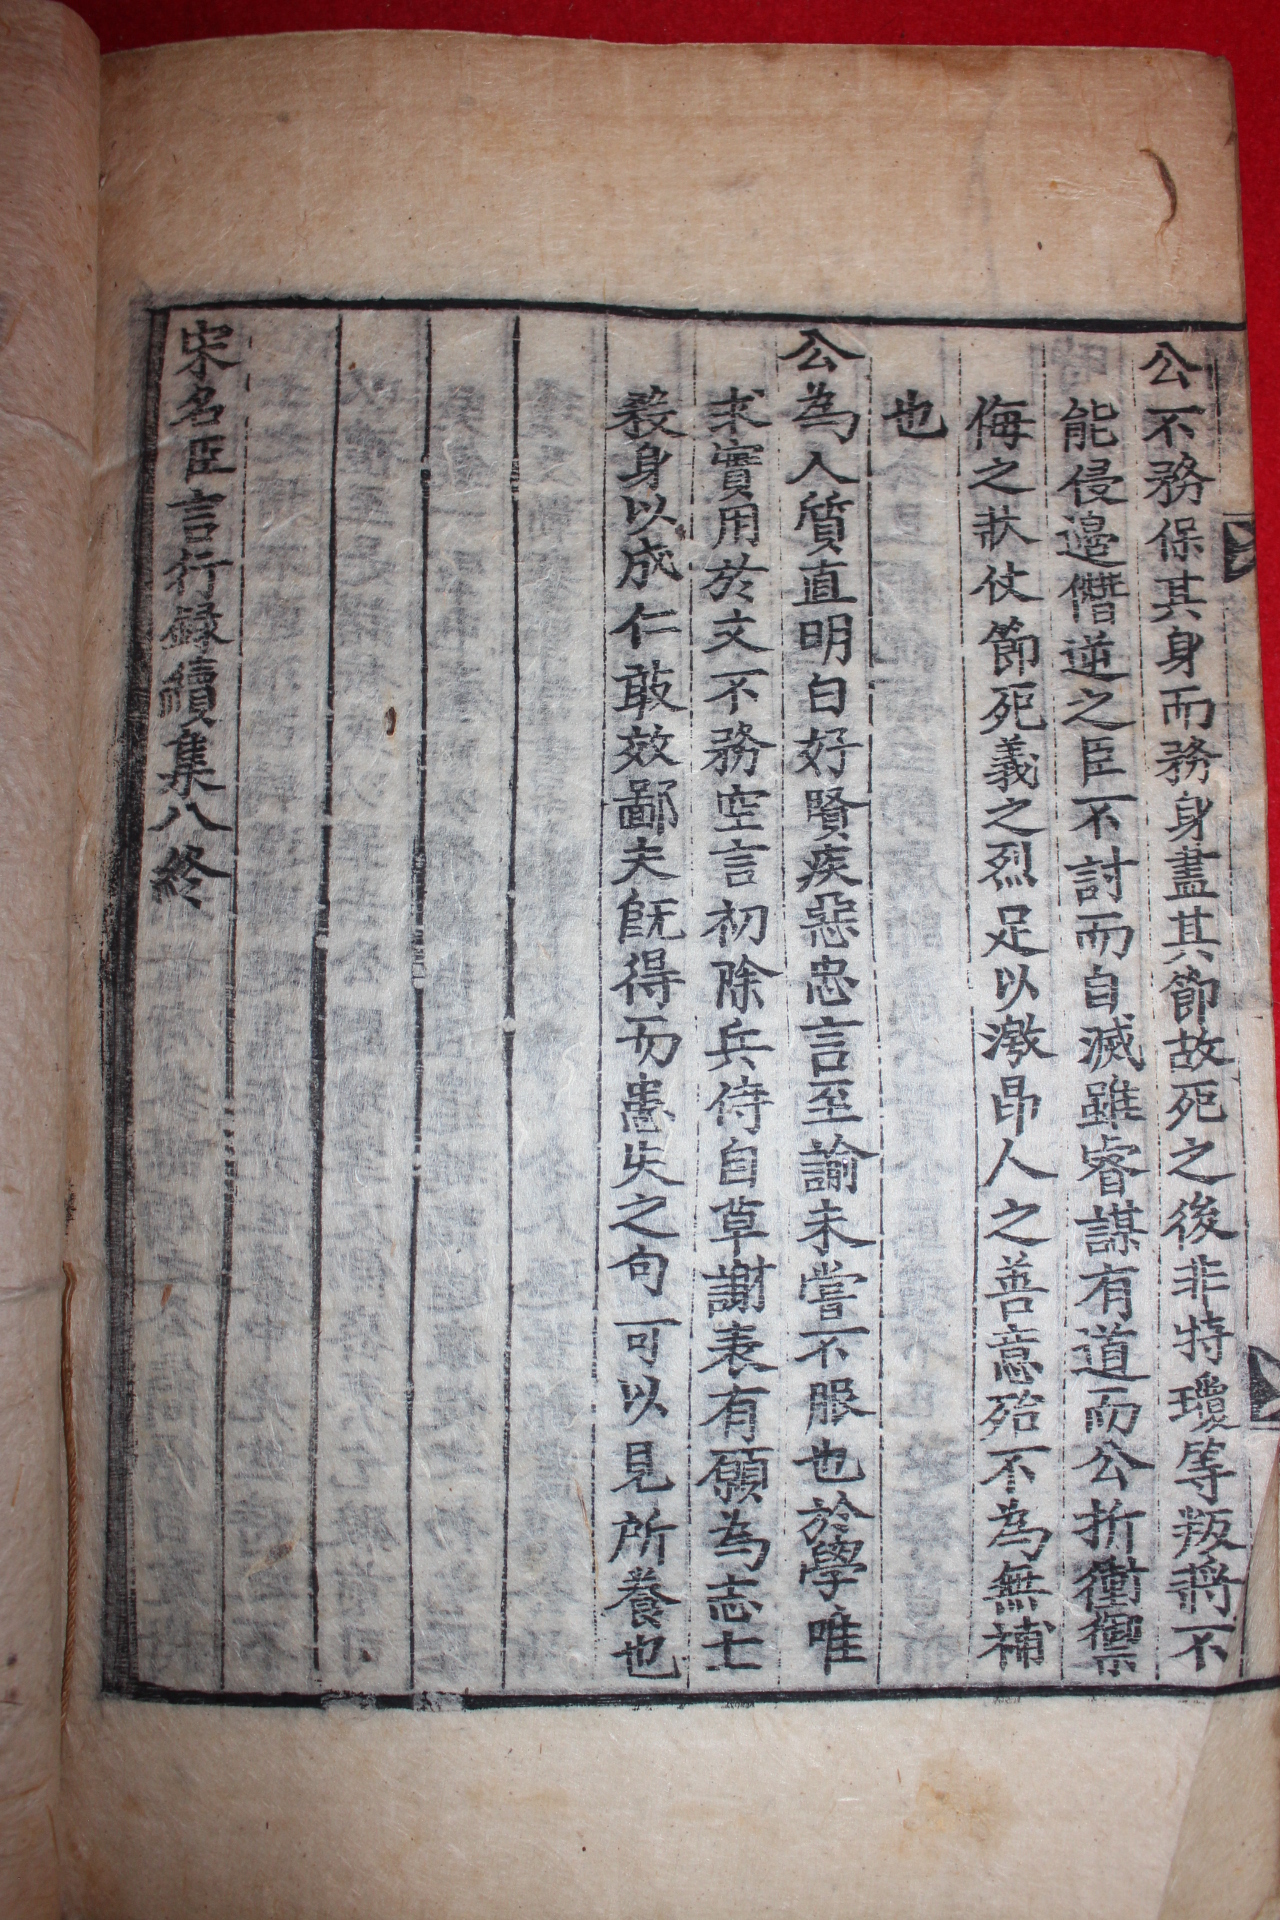 公不務保其身而務身盡其節故死之後非特瓊等叛將不
能侵邊僭逆之臣不討而自滅雖睿謀有道而公折衝禦
侮之狀仗節死義之烈足以激昂人之善意殆不為無補
也
公為人質直明白好賢疾惡忠言至論未嘗不服也於學唯
求實用於文不務空言初除兵侍自草謝表有願為志士
殺身以成仁敢效鄙夫旣得而患失之句可以見所養也
宋名臣言行錄續集八終